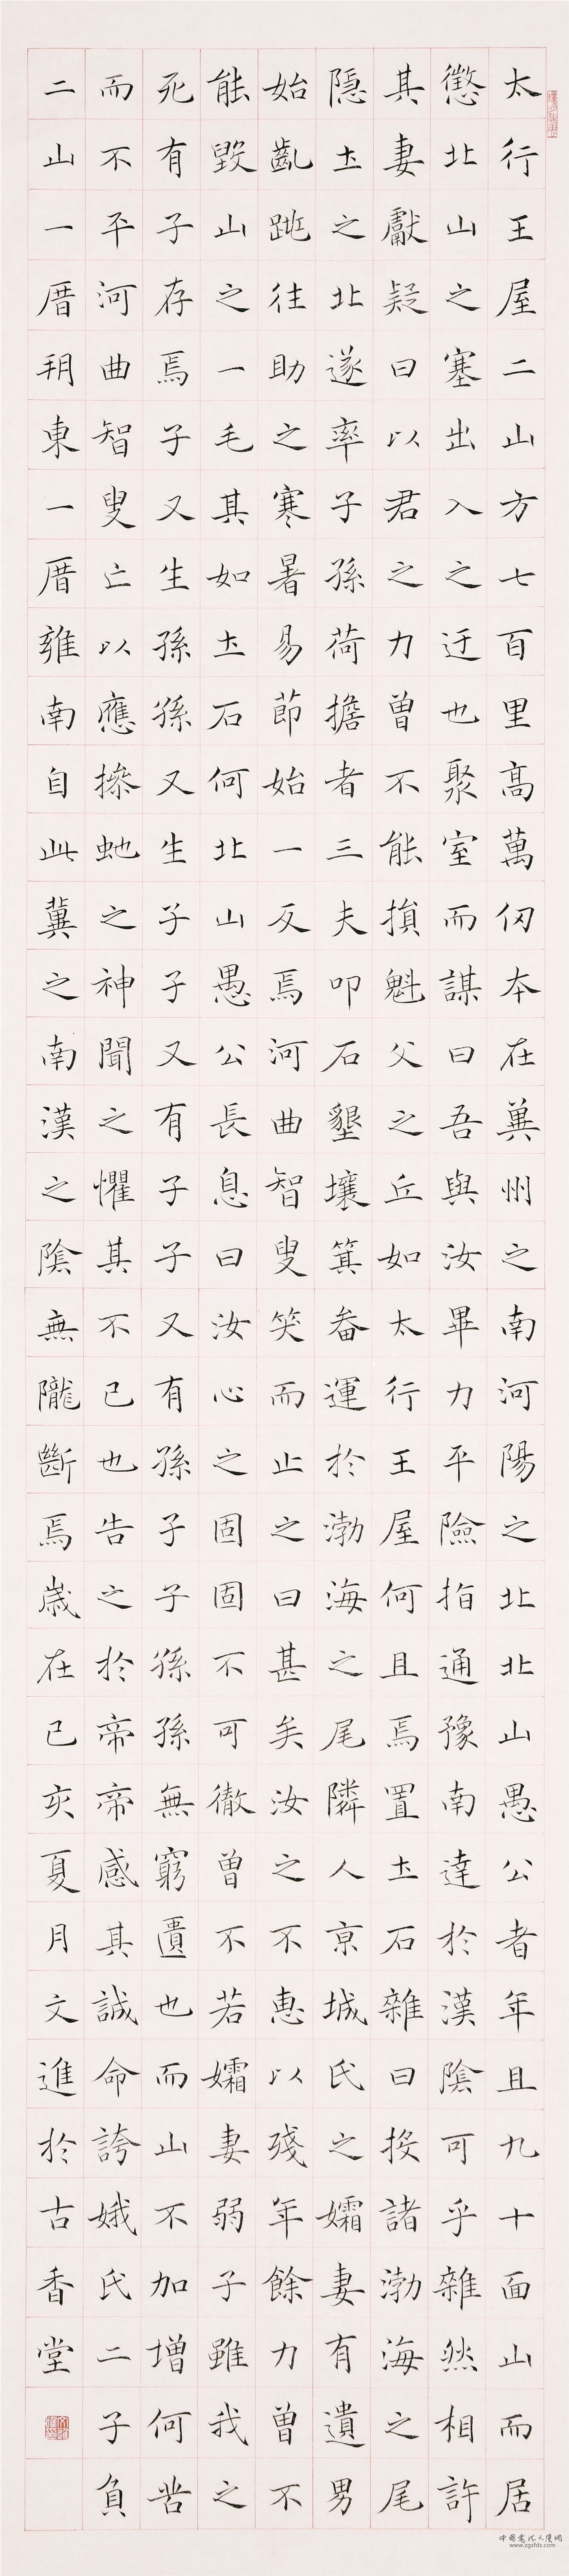 太行王屋二山方七百里高萬仞本在冀州之南河陽之北北山愚公者年且九十面山而居
懲北山之塞出入之迂也聚室而謀曰吾與汝畢力平險指通豫南達於漢陰可乎雜然相許
其妻獻疑曰以君之力曾不能損魁父之丘如太行王屋何且焉置土石雜曰投諸渤海之尾
隱土之北遂率子孫荷擔者三夫叩石墾壤箕畚運於渤海之尾隣人京城氏之孀妻有遺男
始齓跳往助之寒暑易節始一反焉河曲智叟笑而止之曰甚矣汝之不惠以殘年餘力曾不
能毀山之一毛其如土石何北山愚公長息曰汝心之固固不可徹曾不若孀妻弱子雖我之
死有子存焉子又生孫孫又生子子又有子子又有孫子子孫孫無窮匱也而山不加增何苦
而不平河曲智叟亡以應操虵之神聞之懼其不已也告之於帝帝感其誠命誇娥氏二子負
二山一厝朔東一厝雍南自此冀之南漢之陰無隴斷焉歲在己亥夏月文進於古香堂
中国書法大厦网
www.zgsfds.com